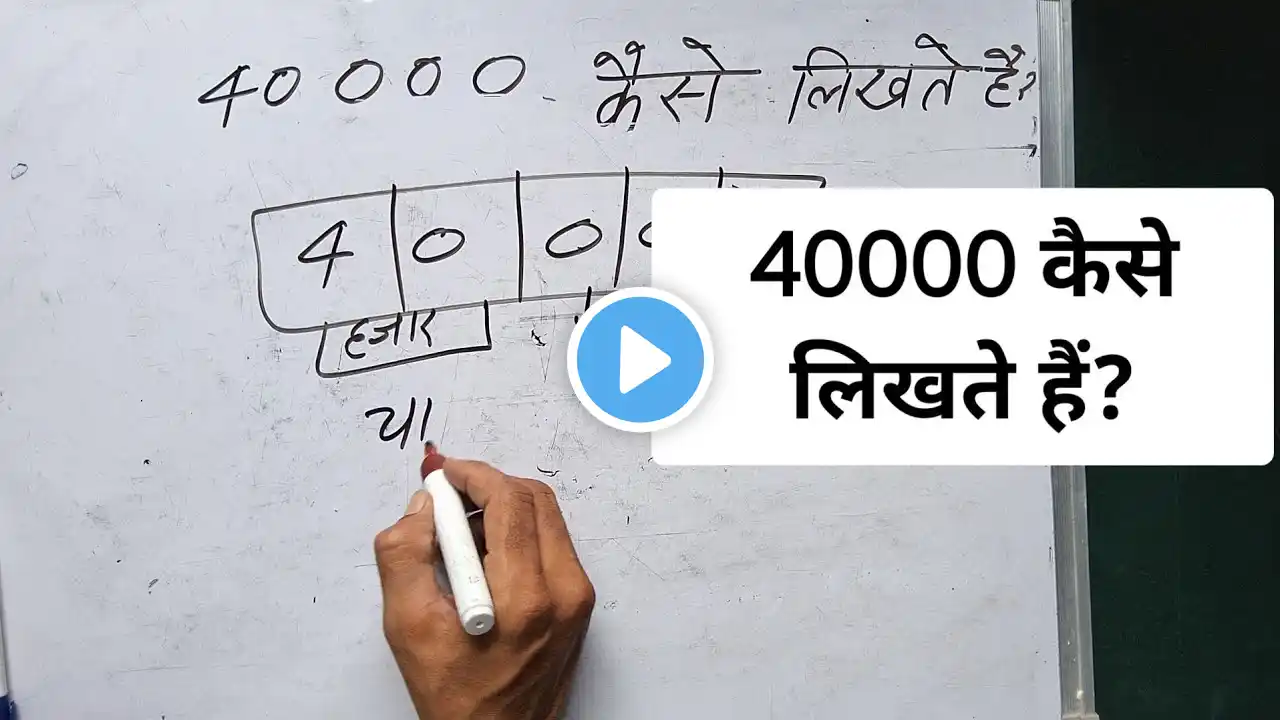 40000 कैसे लिखते हैं?
4 0 0
हजार
या
40000 कैसे
लिखते हैं?